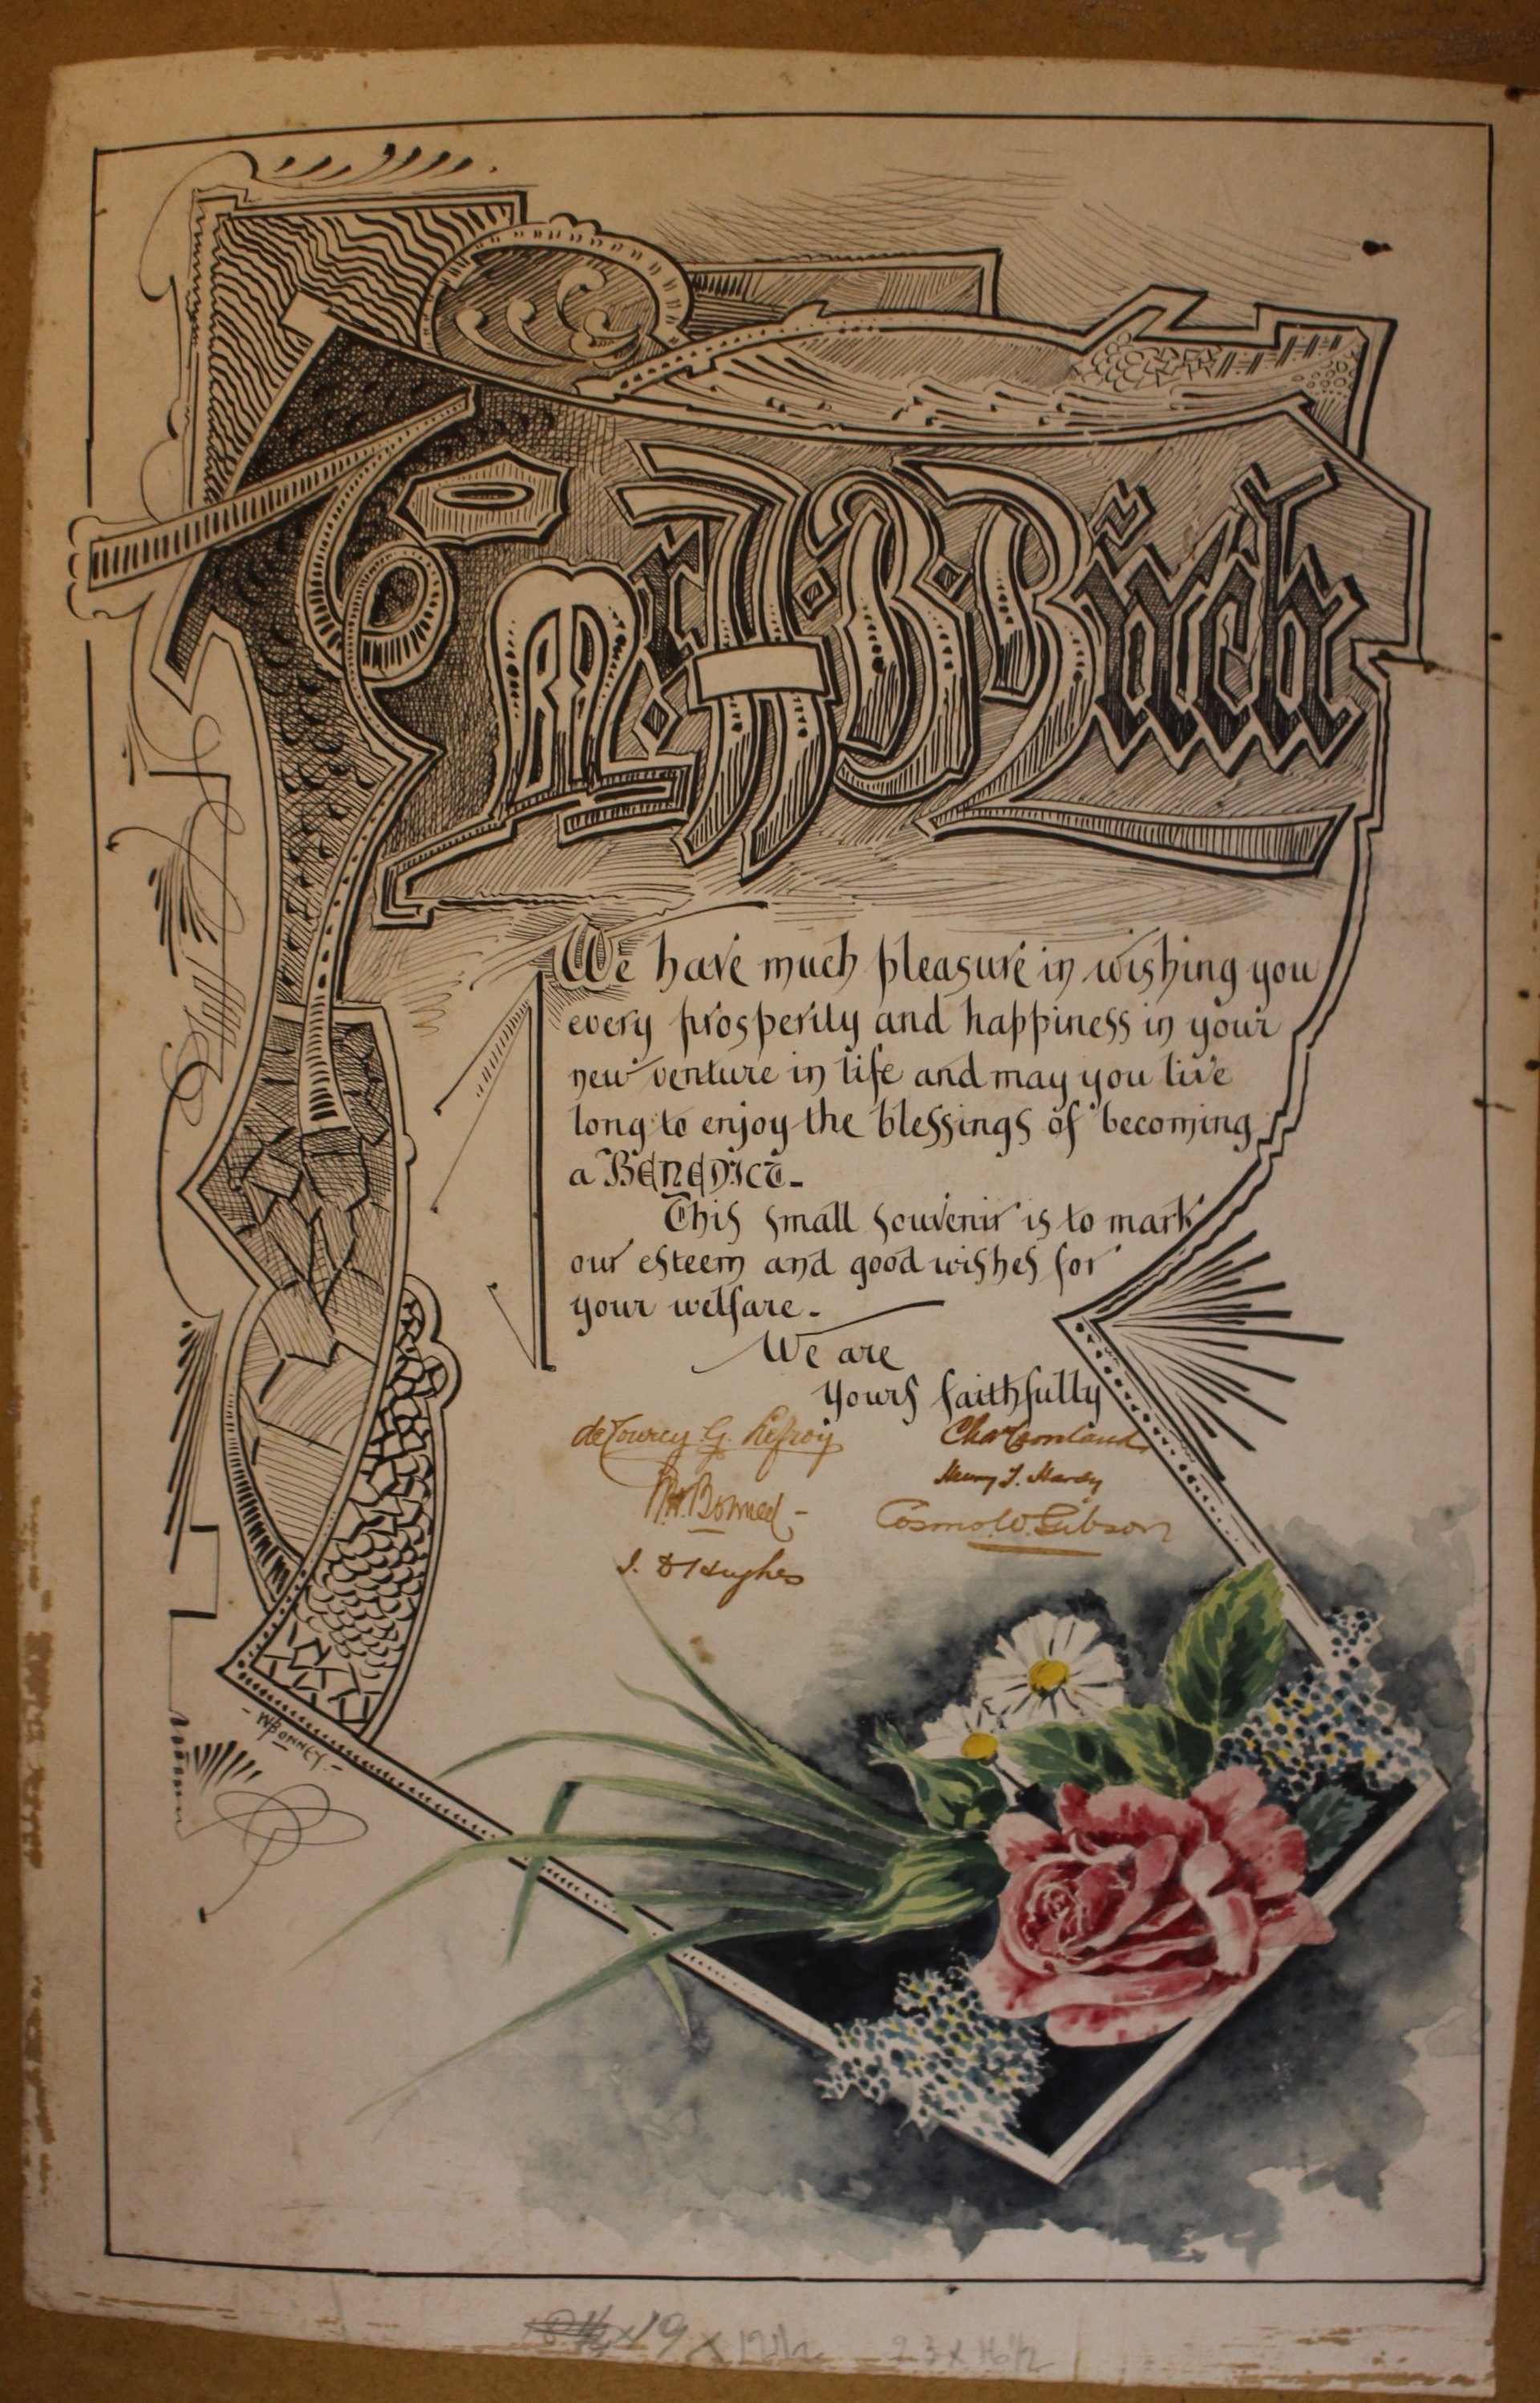 To
Mr. H. B. Birch
We have much pleasure in wishing you
every prosperity and happiness in your
new venture in life and may you live
long to enjoy the blessings of becoming
a Benedict.
This small souvenir is to mark
our esteem and good wishes for
your welfare.
We are
yours faithfully
deCourcy G. Lefroy
Henry T. Hardy
Cosmo W. Gibson
J. D Hughes
- W BONNEY. -
x 19 x 12 1/2 23 x 16 1/2